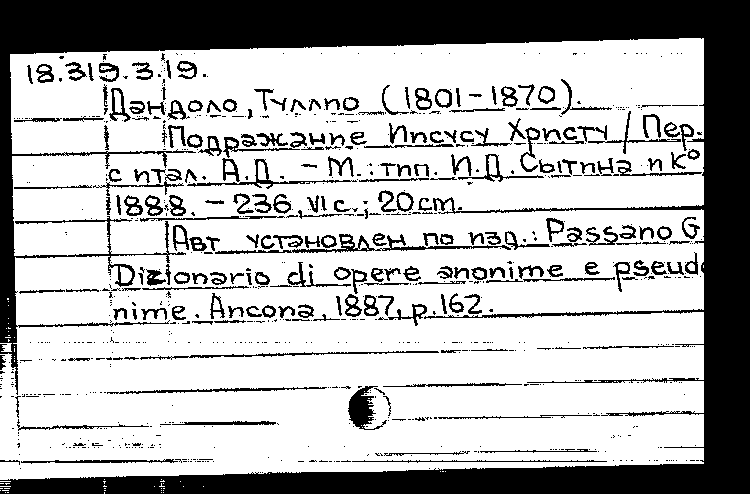 18.319.3.19.
Дандоло, Туллио (1801-1870).
Подражание Иисусу Христу / Пер.
с итал. А.Д. - М.: тип. И.Д. Сытина и К°
1888. - 236, VI с.; 20 cm.
Авт установлен по изд.: Passano G
Dizionario di opere anonime e pseudo
nime. Ancona, 1887, p.162.